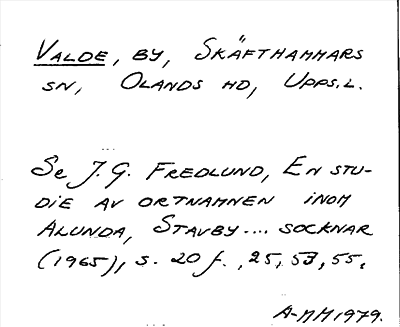 VALDE, BY, SKÄFTHAMMARS
SN, OLANDS HD, UPPS.L.
Se J. G. FREDLUND, EN STU-
DIE AV ORTNAMNEN INOM
ALUNDA, STAVBY.... SOCKNAR
(1965), s. 20 f., 25, 53, 55.
A-MM 1979.